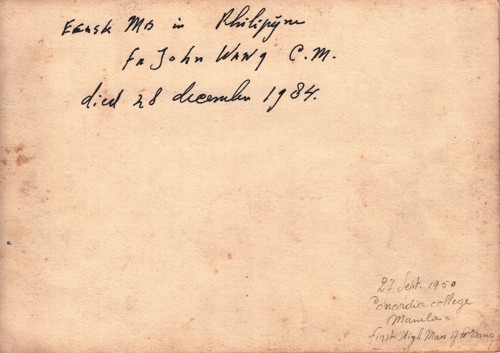 in Philipýne
fa John Wang C.M.
died 28 december 1984.
27 Sept. 1950
Concordia college
Manila
first High Mass of fr Wang